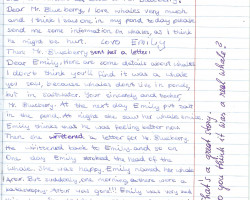 Dear Mr. Blueberry, I love whales very much
and I think I saw one in my pond to day. please
send me some information on whales, as I think
he might be hurt. Love Emily
Then Mr. Blueberry sent her a letter:
Dear Emily, Here are some details about whales
I don't think you'll find it was a whale
you saw, because whales don't live in ponds,
but in saltwater. Your sincerely and teacher
Mr. Blueberry. At the next day Emily put salt
in the pond. At night she saw her whale smile
Emily things that he was feeling better now.
Then she writtered a letter for Mr. Blueberry.
He writtened back to Emily and so on
One day Emily stroked the head of the
whale. She was happy. Emily named the whale
Arthur. But suddenly, one morning
Arthur was gone!!! Emily was very sad
What a great story.
Do you think it was a real whale?